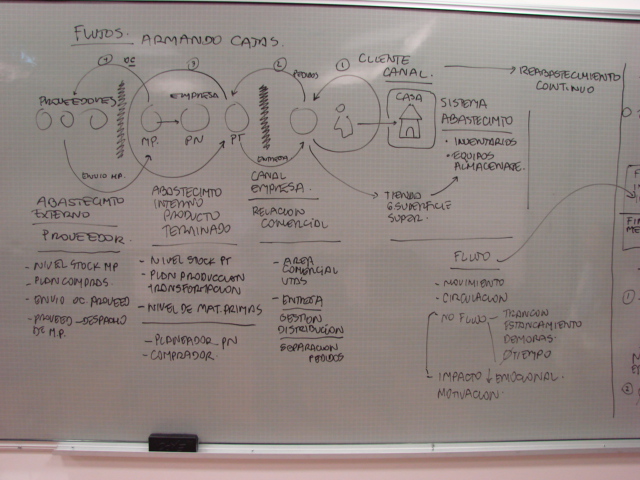 FLUJOS. ARMANDO CAJAS.
4 OC
3
2
1
PEDIDOS
CLIENTE
CANAL.
REABASTECIMIENTO
CONTINUO
PROVEEDORES
EMPRESA
CASA
SISTEMA
ABASTECIMTO
• INVENTARIOS
• EQUIPOS
ALMACENAJE.
MP.
PN
PT
ENVIO MP.
ENTREGA
TIENDA
SUPERFICIE
SUPER.
ABASTECIMTO
EXTERNO
PROVEEDOR.
- NIVEL STOCK MP
- PLAN COMPRAS
- ENVIO OC PROVEED
- PROVEED - DESPACHO
DE M.P.
ABASTECIMTO
INTERNO
PRODUCTO
TERMINADO
- NIVEL STOCK PT
- PLAN PRODUCCION
TRANSFORMACION
- NIVEL DE MAT. PRIMAS
- PLANEADOR PN
- COMPRADOR.
CANAL
EMPRESA.
RELACION
COMERCIAL
- AREA
COMERCIAL
VTAS
- ENTREGA
GESTION
DISTRIBUCIÓN
SEPARACION
PEDIDOS
FLUJO
- MOVIMIENTO
- CIRCULACION
- NO FLUJO - TRANCON
ESTANCAMIENTO
DEMORAS.
TIEMPO
- IMPACTO ↓ EMOCIONAL.
MOTIVACION.